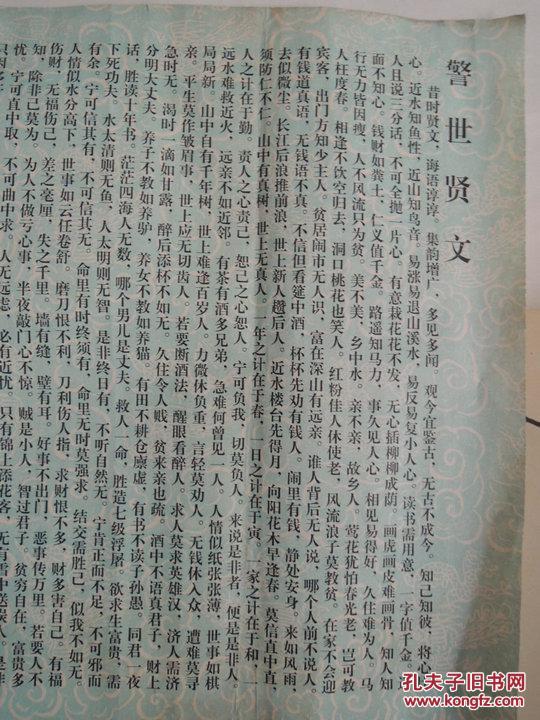 警世贤文
昔时贤文，诲语谆谆。集韵增广，多见多闻。观今宜鉴古，无古不成今。知己知彼，将心
心。近水知鱼性，近山知鸟音。易涨易退山溪水，易反易复小人心。读书需用意，一字值千金。
人且说三分话，不可全抛一片心。有意栽花花不发，无心插柳柳成荫。画虎画皮难画骨，知人知
面不知心。钱财如粪土，仁义值千金。路遥知马力，事久见人心。相见易得好，久住难为人。马
行无力皆因瘦，人不风流只为贫。美不美，乡中水。亲不亲，故乡人。莺花犹怕春光老，岂可教
人枉度春。相逢不饮空归去，洞口桃花也笑人。红粉佳人休使老，风流浪子莫教贫。在家不会迎
宾客，出门方知少主人。贫居闹市无人识，富在深山有远亲。谁人背后无人说，哪个人前不说人。
有钱道真语，无钱语不真。不信但看筵中酒，杯杯先劝有钱人。闹里有钱，静处安身。来如风雨，
去似微尘。长江后浪推前浪，世上新人趱后人。近水楼台先得月，向阳花木早逢春。莫信直中直，
须防仁不仁。山中有真树，世上无真人。一年之计在于春，一日之计在于寅，一家之计在于和，一
人之计在于勤。责人之心责己，恕己之心恕人。宁可负我，切莫负人。来说是非者，便是是非人。
远水难救近火，远亲不如近邻。有茶有酒多兄弟，急难何曾见一人。人情似纸张张薄，世事如棋
局局新。山中自有千年树，世上难逢百岁人。力微休负重，言轻莫劝人。无钱休入众，遭难莫寻
亲。平生莫作皱眉事，世上应无切齿人。若要断酒法，醒眼看醉人。求人莫求英雄汉，济人需济
急时无。渴时一滴如甘露，醉后添杯不如无。久住令人贱，贫来亲也疏。酒中不语真君子，财上
分明大丈夫。养子不教如养驴，养女不教如养猫。有田不耕仓廪虚，有书不读子孙愚。同君一夜
话，胜读十年书。茫茫四海人无数，哪个男儿是丈夫。救人一命，胜造七级浮屠。欲求生富贵，需
下死功夫。水太清则无鱼，人太明则无智。是非终日有，不听自然无。宁肯正而不足，不可邪而
有余。宁可信其有，不可信其无。命里有时终须有，命里无时莫强求。结交需胜己，似我不如无。
人情似水分高下，世事如云任卷舒。磨刀恨不利，刀利伤人指，求财恨不多，财多害自己。有福
伤财，无福伤己，差之毫厘，失之千里。墙有缝，壁有耳。好事不出门，恶事传万里。若要人不
知，除非己莫为。为人不做亏心事，半夜敲门心不惊。贼是小人，智过君子。贫穷自在，富贵多
忧。宁可直中取，不可曲中求。人无远虑，必有近忧。只有锦上添花客，无有雪中送炭人。是非
孔夫子旧书网
www.kongfz.com